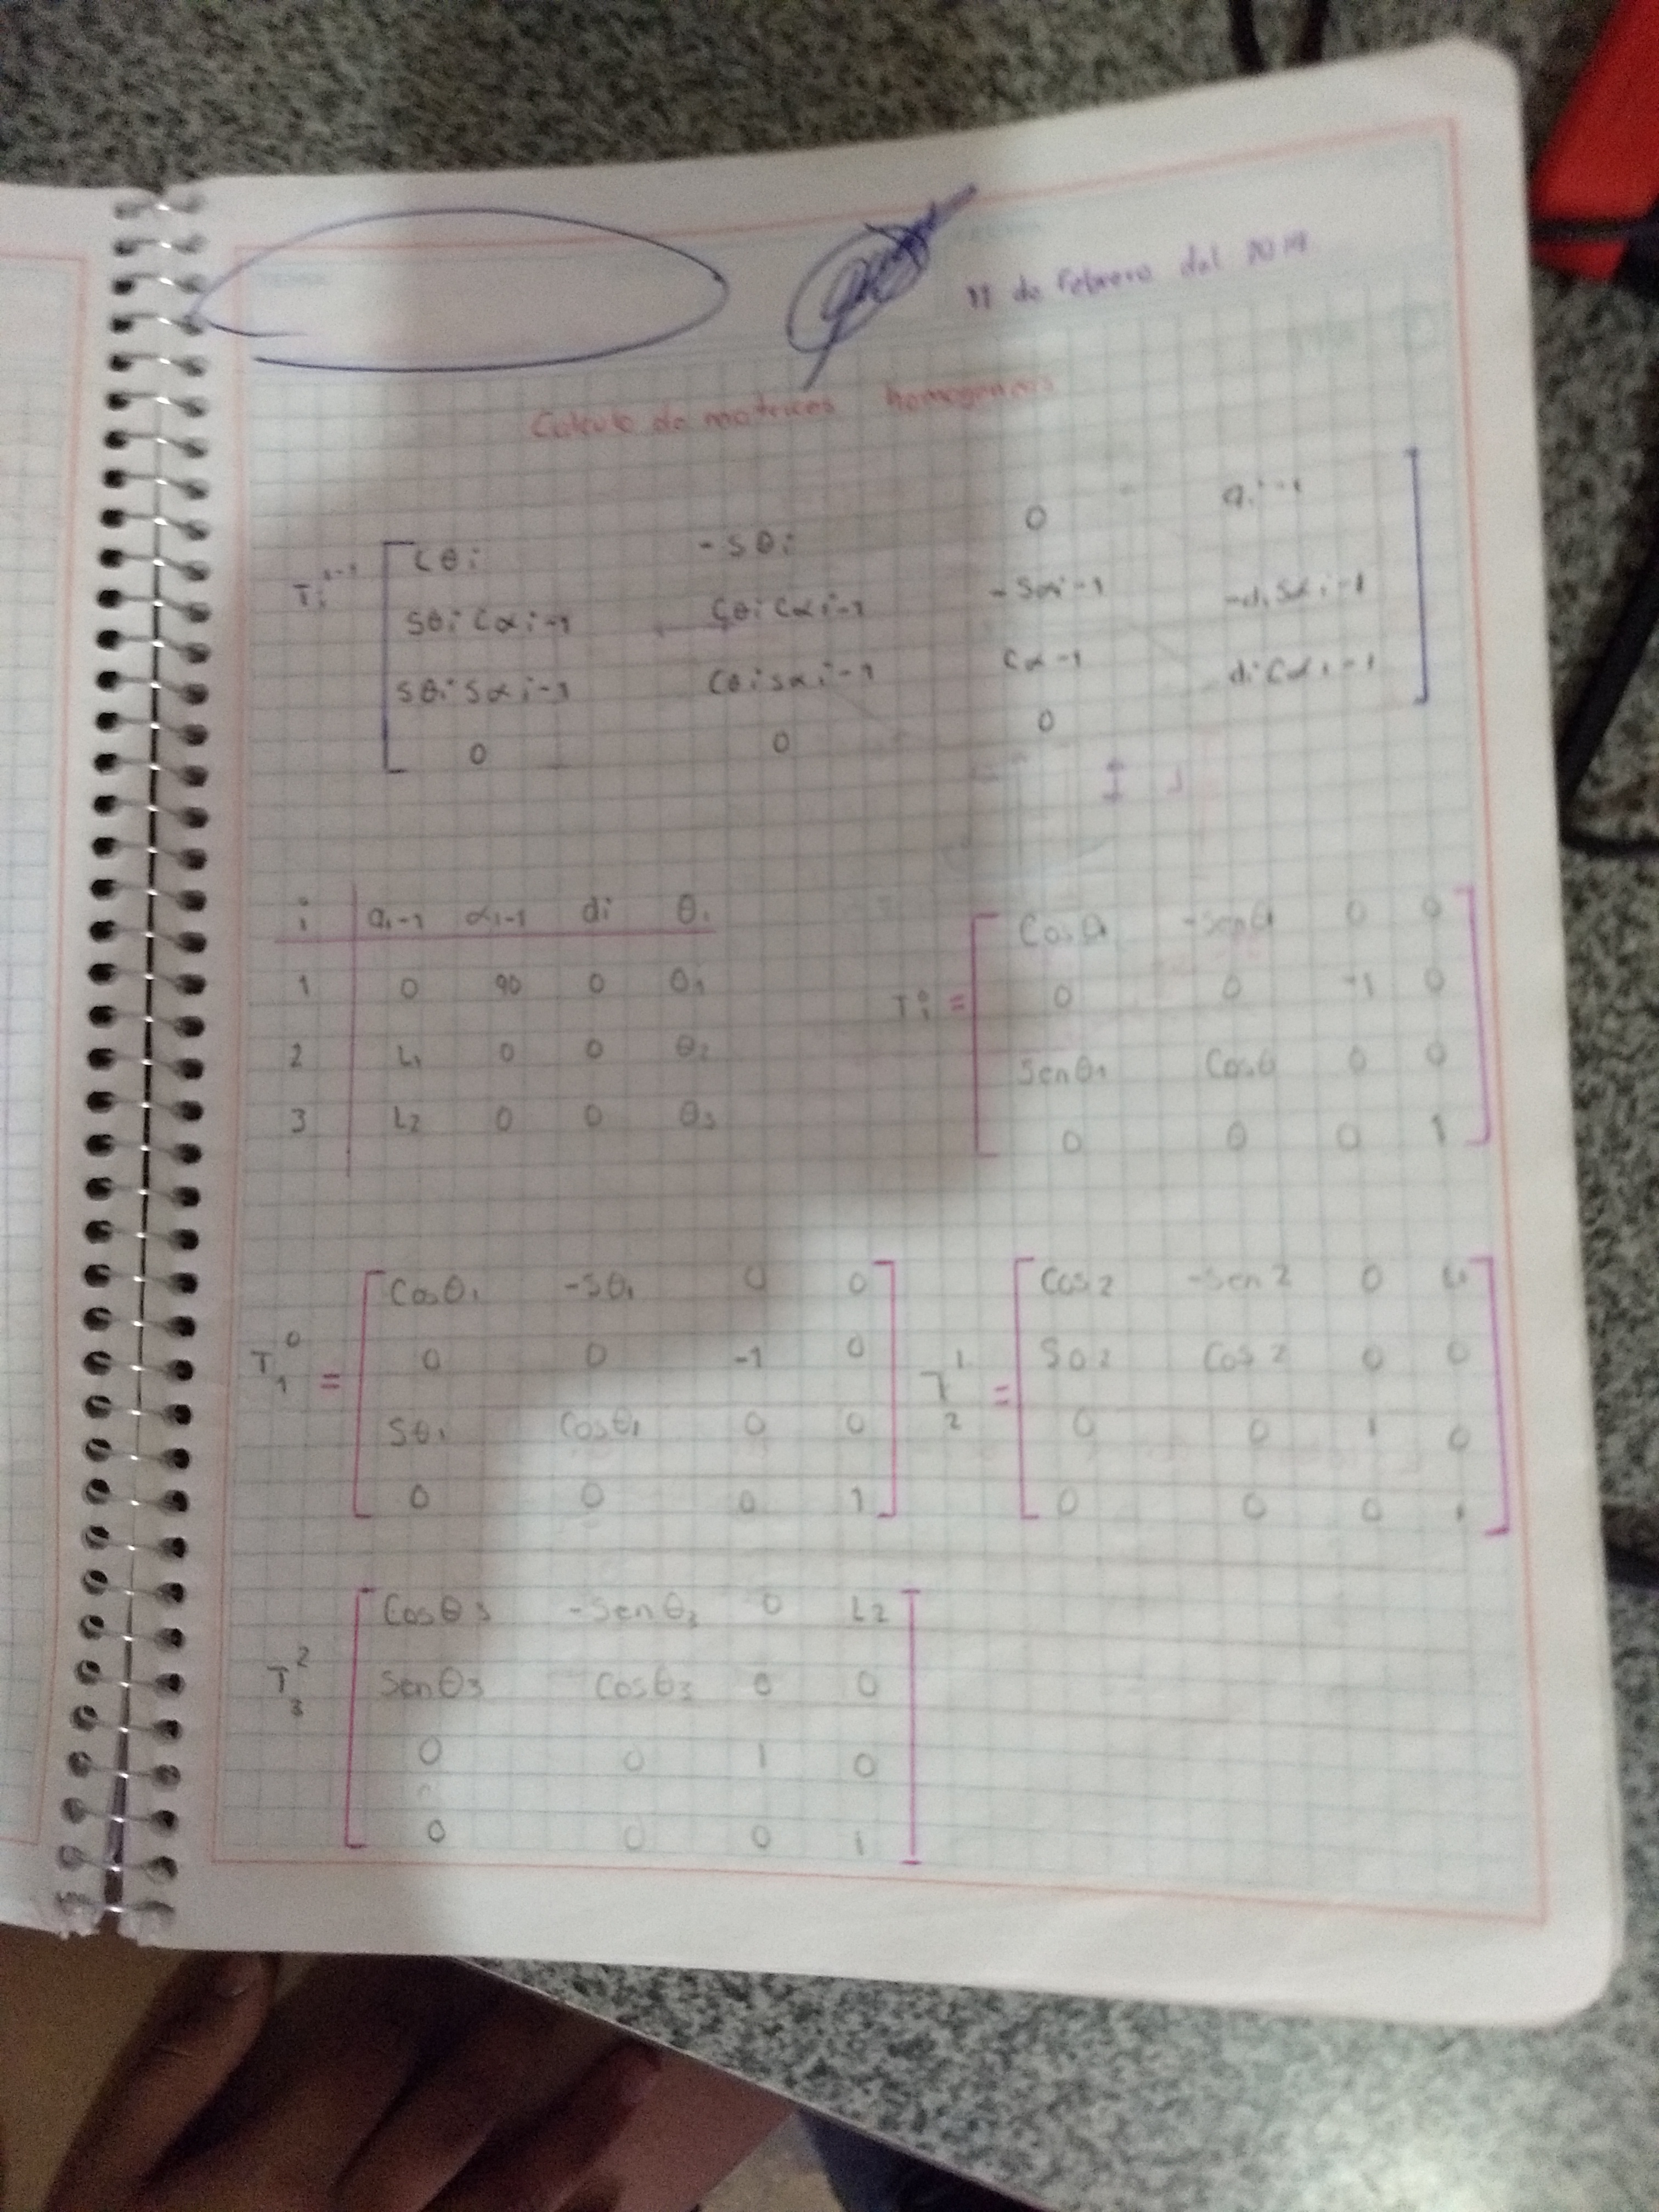 11 de Febrero del 2019
Calculo de matrices homogeneas
Ti i-1
Cθi -Sθi 0 ai-1
Sθi Cαi-1 Cθi Cαi-1 -Sαi-1 -di Sαi-1
Sθi Sαi-1 Cθi Sαi-1 Cα-1 di Cαi-1
0 0 0
i ai-1 αi-1 di θi
1 0 90 0 θ1
2 L1 0 0 θ2
3 L2 0 0 θ3
Ti 0 =
Cosθ1 -senθ1 0 0
0 0 -1 0
Senθ1 Cosθ 0 0
0 0 0 1
T1 0 =
Cosθ1 -Sθ1 0 0
0 0 -1 0
Sθ1 Cosθ1 0 0
0 0 0 1
T2 1 =
Cos2 -Sen2 0 L1
Sθ2 Cos2 0 0
0 0 1 0
0 0 0 1
T3 2
Cosθ3 -Senθ3 0 L2
Senθ3 Cosθ3 0 0
0 0 1 0
0 0 0 1